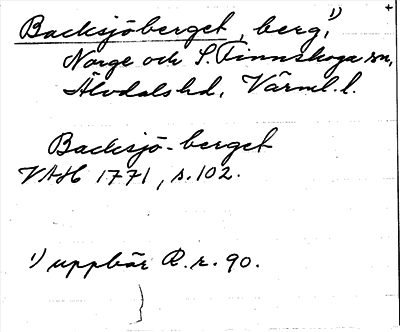 Backsjöberget, berg,¹⁾ +
Norge och S. Finnskoga sn,
Älvdals hd, Värml. l.
Backsjö-berget
VAH 1771, s. 102.
¹⁾ uppbär R.r. 90.